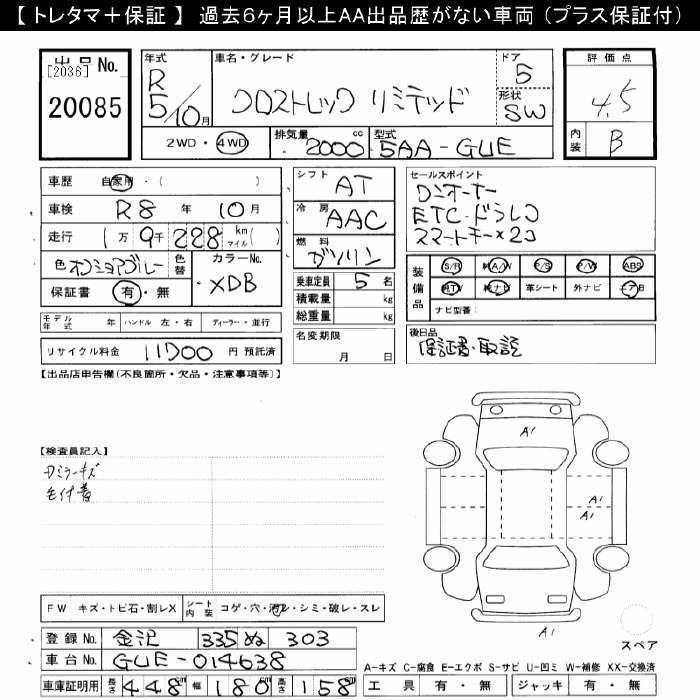 【 トレタマ＋保証 】 過去6ヶ月以上AA出品歴がない車両 (プラス保証付)
出品 No.
[2036]
20085
年式
R5/10月
車名・グレード
クロストレック リミテッド
ドア
5
形状
SW
評価点
4.5
内装
B
2WD・4WD
排気量
2000cc
型式
5AA-GUE
車歴 自家用・( )
車検 R8年 10月
走行 1万9千228 km マイル( )
色 オフショアブルー 色替
カラーNo.
XDB
保証書 有・無
モデル年式 年 ハンドル 左・右 ディーラー・並行
リサイクル料金 11000 円 預託済
シフト
AT
冷房
AAC
燃料
ガソリン
乗車定員 5名
積載量 kg
総重量 kg
名変期限
月 日
セールスポイント
ワンオーナー
ETC・ドラレコ
スマートキー×2コ
装備品
S/R 純A/W P/S P/W ABS
純TV 純ナビ 革シート 外ナビ エアB
ナビ型番:
後日品
保証書・取説
【出品店申告欄(不良箇所・欠品・注意事項等)】
【検査員記入】
毛付着
A1
A1
A1
A1
スペア
FW キズ・トビ石・割レX
シート内装 コゲ・穴・汚レ・シミ・破レ・スレ
登録No. 金沢 335 ぬ 303
車台No. GUE-014638
車庫証明用 長さ 448cm 幅 180cm 高さ 158cm
A-キズ C-腐食 E-エクボ S-サビ U-凹ミ W-補修 XX-交換済
工具 有・無 ジャッキ 有・無